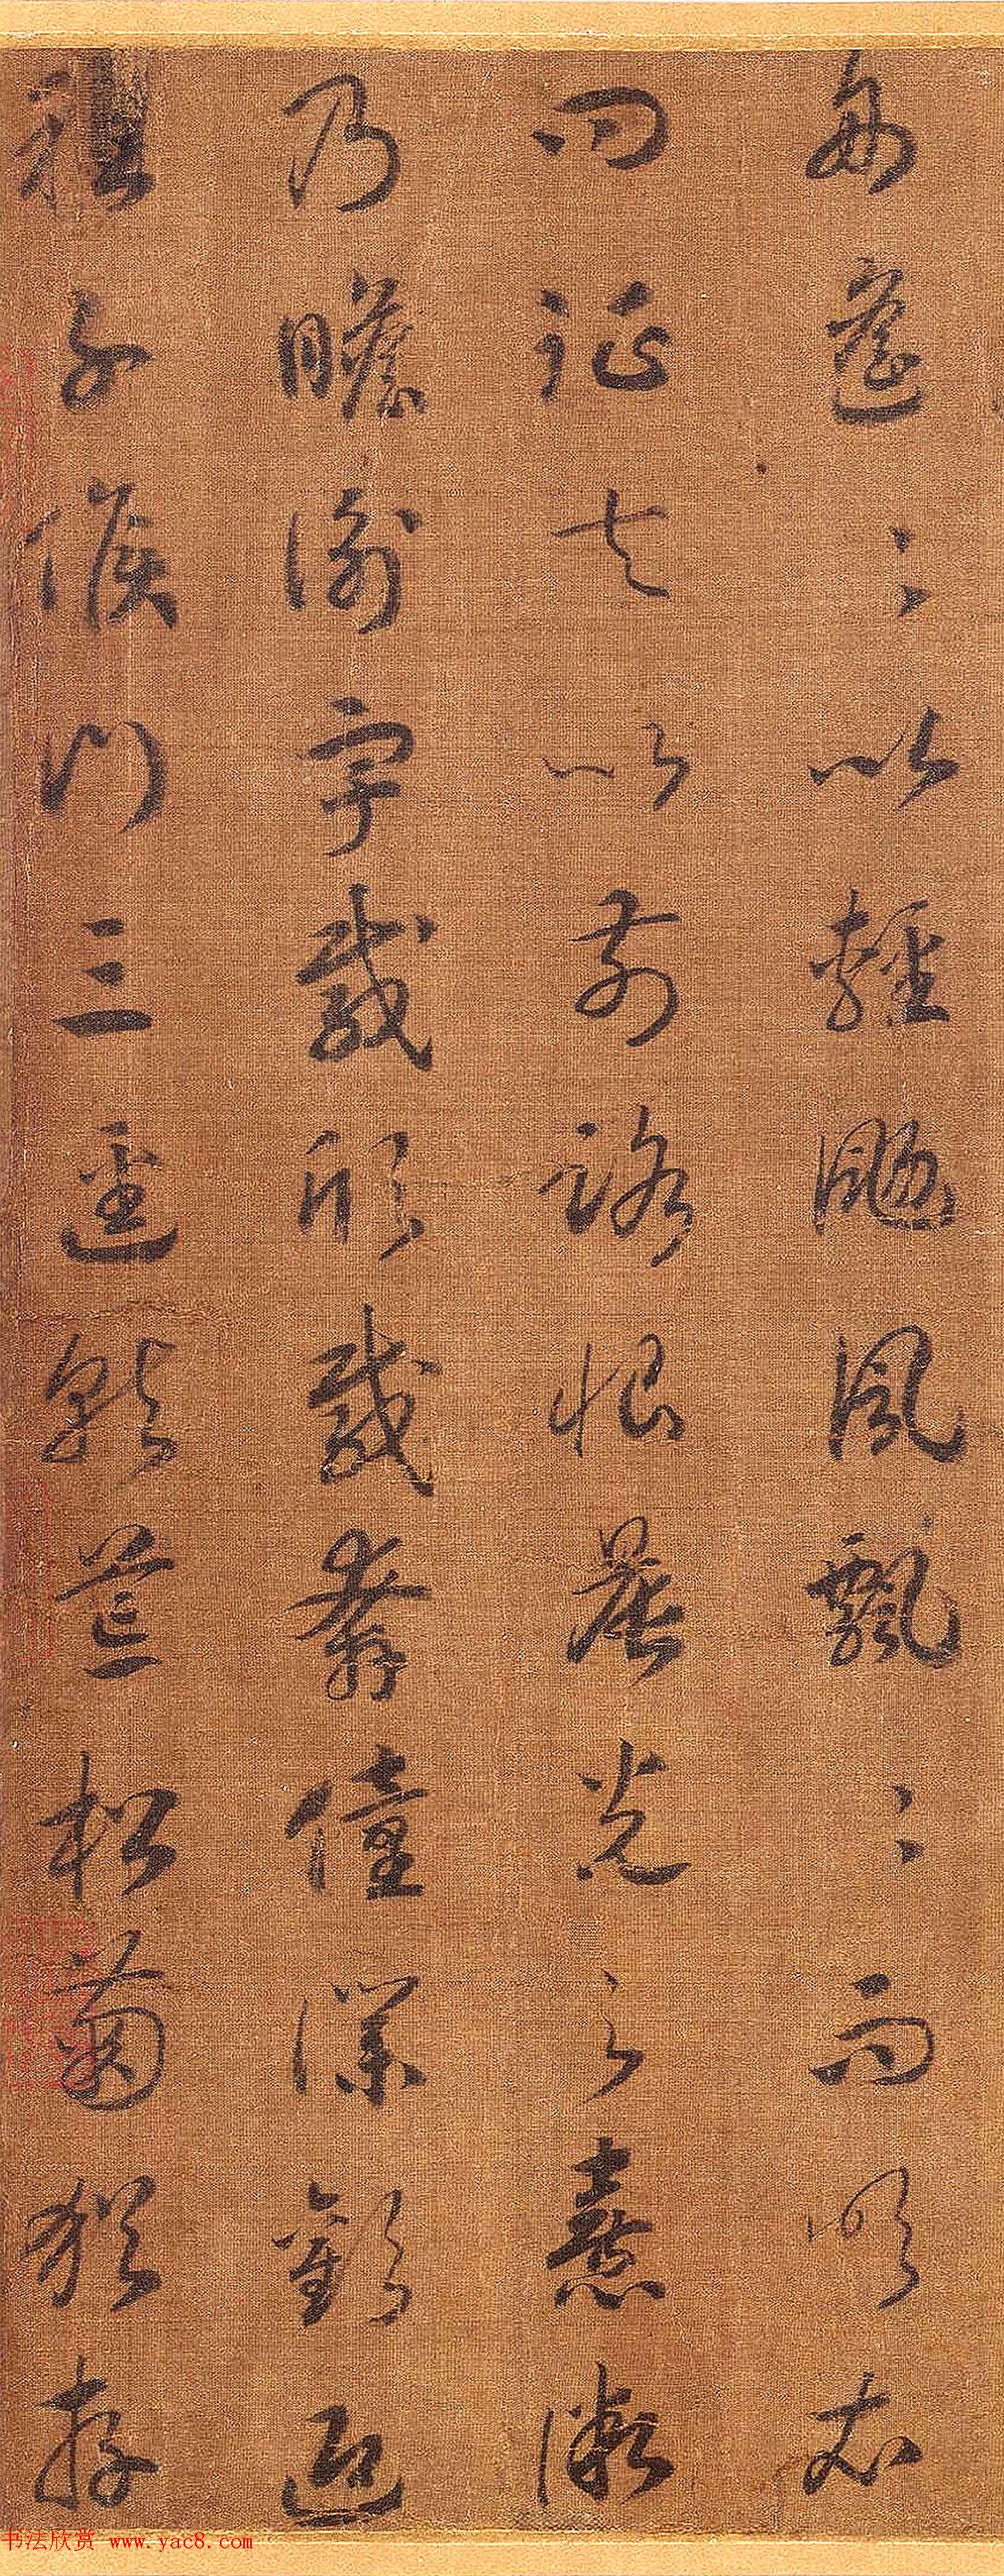 舟遥〻以輕颺風飄〻而吹衣
問征夫以前路恨晨光之熹微
乃瞻衡宇載欣載奔僮僕歡迎
稚子候門三逕就荒松菊猶存
书法欣赏 www.yac8.com